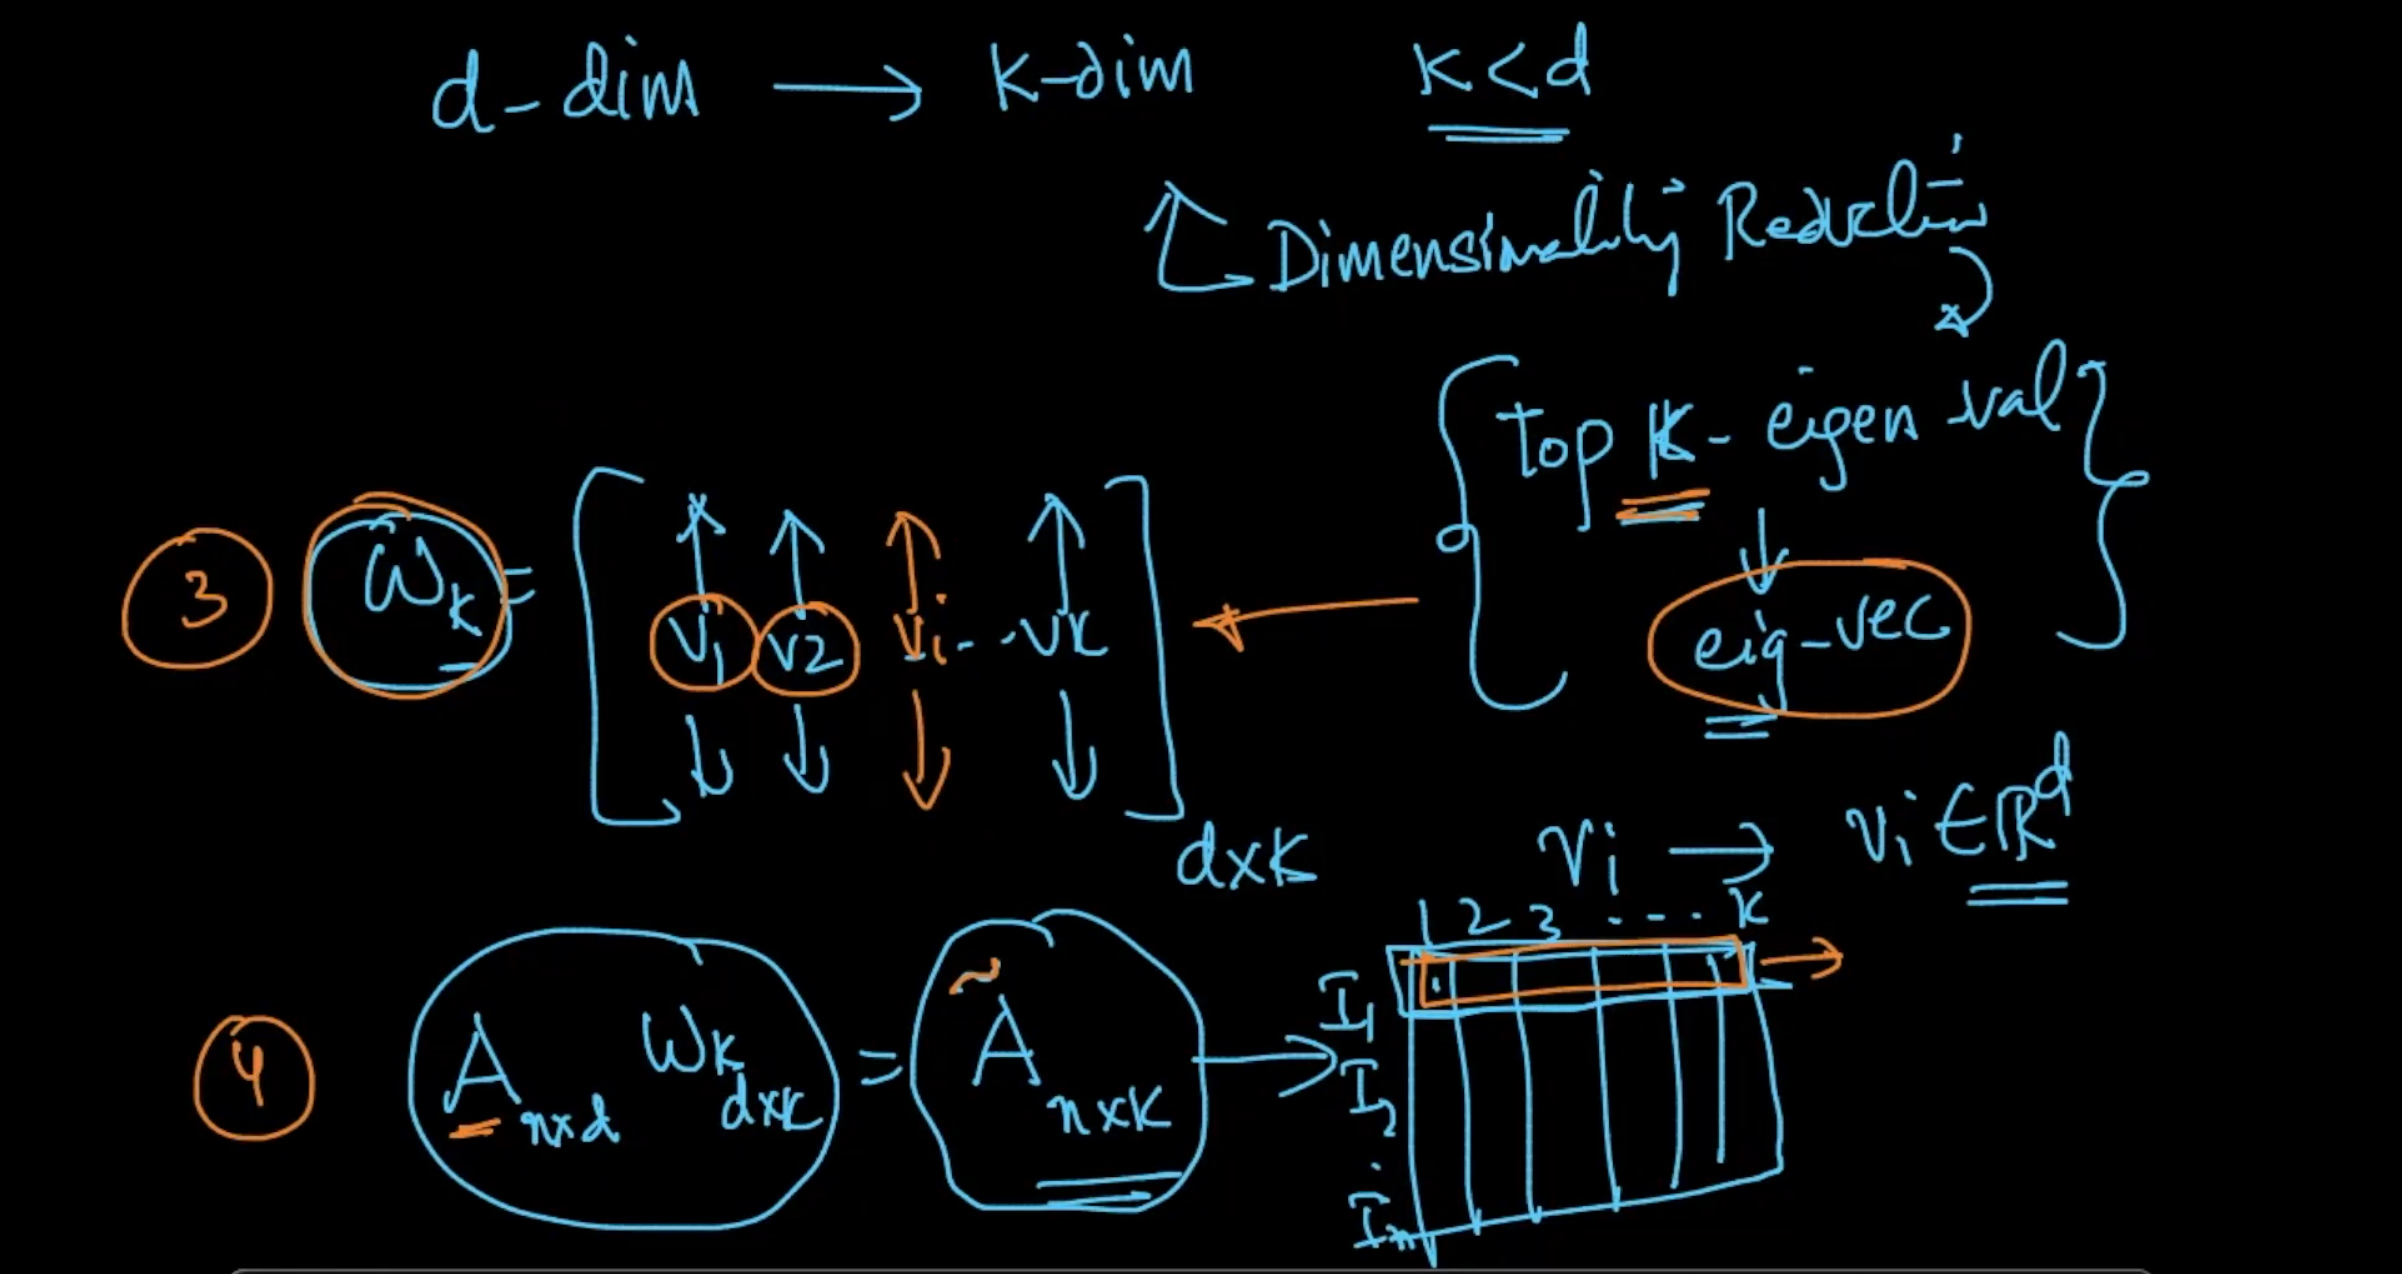 d-dim → k-dim k<d
Dimensionality Reduction
Top K- eigen val
↓
eig-vec
3 Wk = [ v1 v2 vi - - vk ] dxk
vi → vi ∈ ℝ^d
4 A nxd Wk dxk = Ã nxk →
1 2 3 . - - . k
I1
I2
:
In